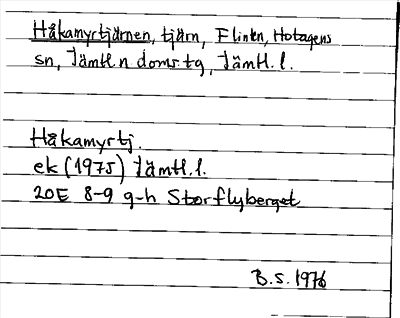 Håkamyrtjärnen, tjärn, Flintn, Hotagens
sn, Jämtl.n doms.tg, Jämtl.l.
Håkamyrtj.
ek (1975) Jämtl.l.
20E 8-9 g-h Storflyberget
B.S. 1976